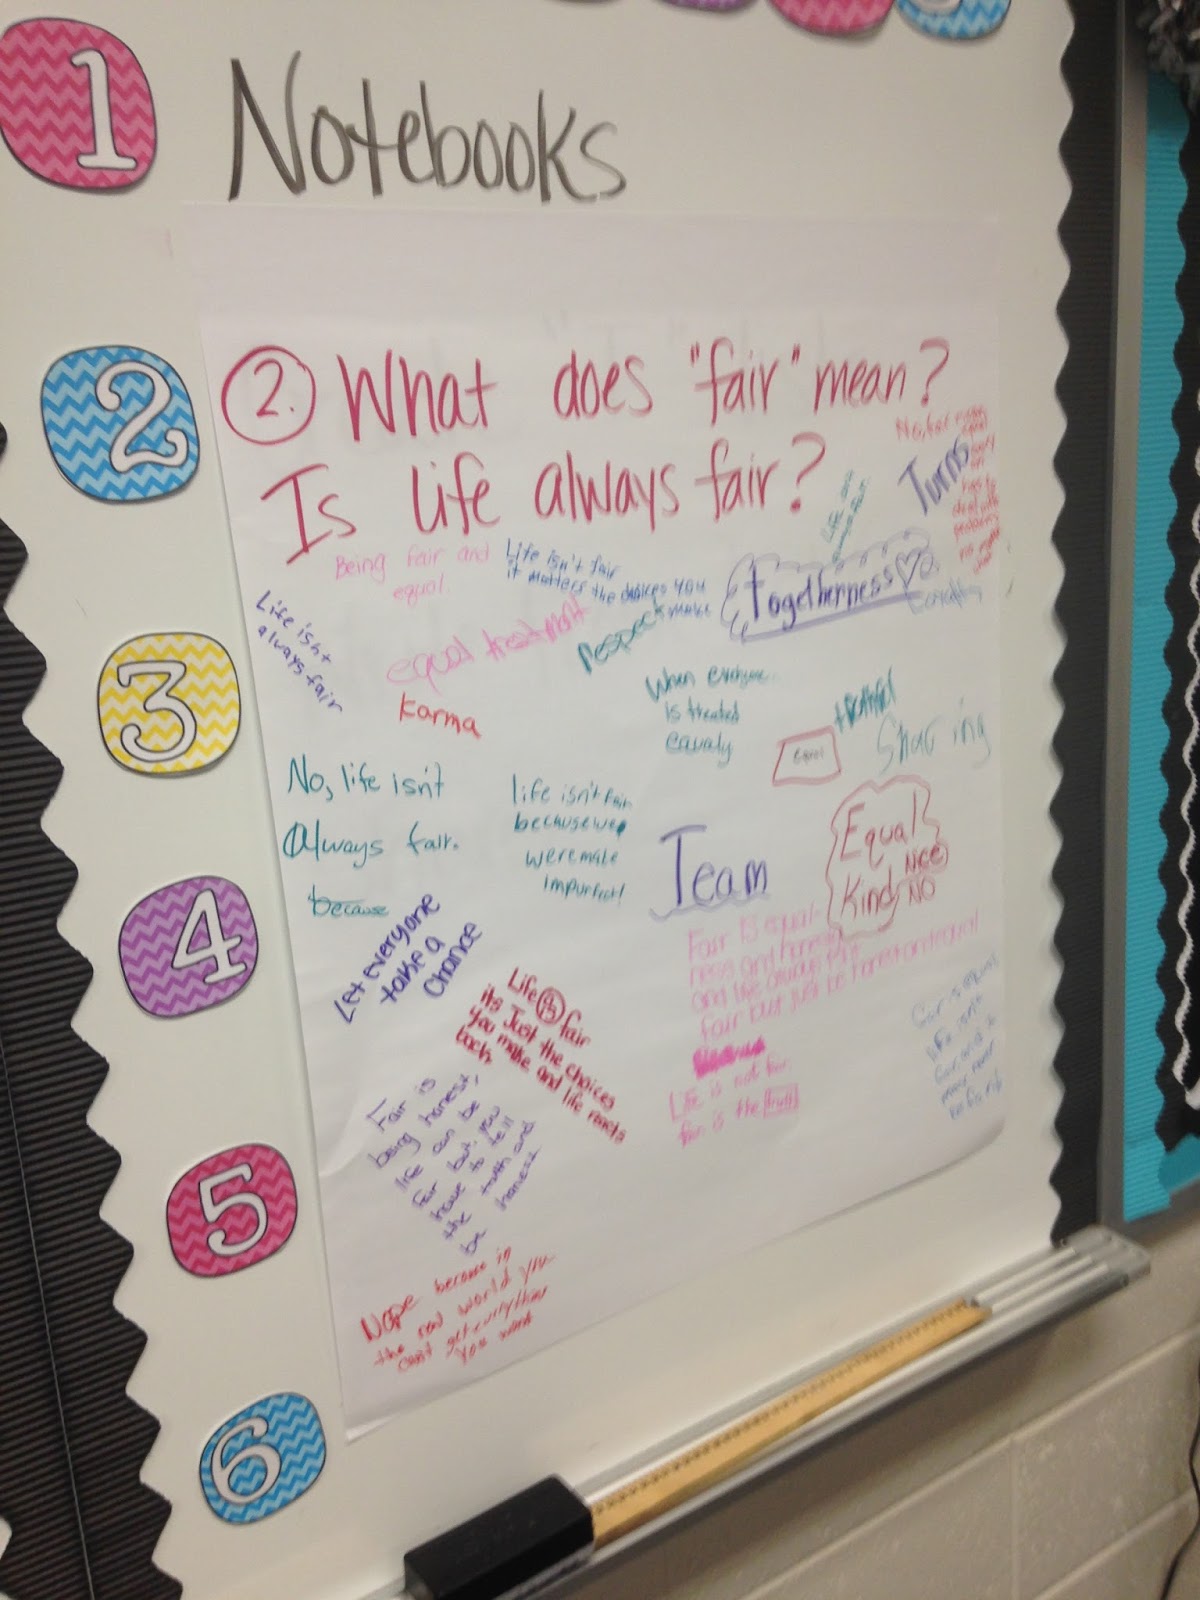 1
Notebooks
2
2. What does "fair" mean?
Is life always fair?
No,
Turns
Being fair and
equal.
Life isn't fair
it matters the choices you
make
Togetherness
Life isnt
always fair
equal treatment
Respect
Karma
When everyone
is treated
equaly
equal
Sharing
3
No, life isn't
Always fair.
because
life isn't fair
because
were made
Team
Equal
Kind
Nice
NO
4
Let everyone
take a
chance
Life is fair
its Just the choices
you make and life reacts
back
Fair is equal-
ness and honesty
and life always
fair but just be honest and equal
Life is not fair.
fair is the
fair is equal
life isn't
fair
Fair is
being honest,
life can be
fair but you
have to tell
the truth and
be honest
5
Nope because in
the real world you
can't get everything
you want
6